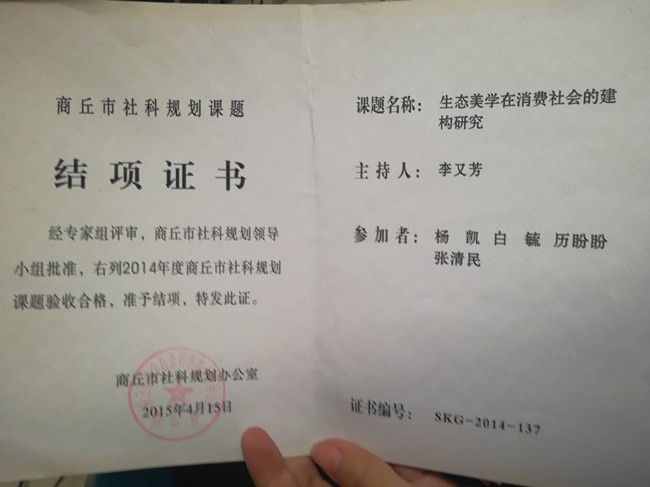 商丘市社科规划课题
结项证书
经专家组评审，商丘市社科规划领导
小组批准，右列2014年度商丘市社科规划
课题验收合格，准予结项，特发此证。
商丘市社科规划办公室
2015年4月15日
课题名称：生态美学在消费社会的建
构研究
主持人：李又芳
参加者：杨 凯 白 毓 历盼盼
张清民
证书编号：SKG-2014-137